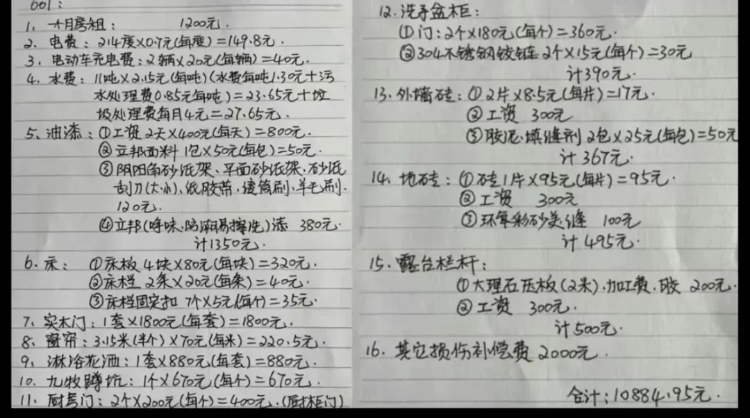 601:
1、一个月房租: 1200元.
2、电费:214度×0.7元(每度)=149.8元.
3、电动车充电费:2辆×20元(每辆)=40元.
4、水费:11吨×2.15元(每吨)(水费每吨1.30元+污
水处理费0.85元每吨)=23.65元+垃
圾处理费每月4元=27.65元.
5、油漆:①工资2天×400元(每天)=800元.
②立邦面料1包×50元(每包)=50元.
③阴阳角砂纸架、平面砂纸架、砂纸
刮刀(大小)、纸胶带、滚筒刷、羊毛刷.
120元.
④立邦(净味、防潮易擦洗)漆 380元.
计1350元.
6、床: ①床板4块×80元(每块)=320元.
②床栏2条×20元(每条)=40元.
③床栏固定扣7个×5元(每个)=35元.
7、实木门:1套×1800元(每套)=1800元.
8、窗帘:3.15米(半个)×70元(每米)=220.5元.
9、淋浴花洒:1套×880元(每套)=880元.
10、九牧蹲坑:1个×670元(每个)=670元.
11、厨房门:2个×200元(每个)=400元.(厨柜门)
12、洗手盆柜:
①门:2个×180元(每个)=360元.
②304不锈钢铰链2个×15元(每个)=30元
计390元.
13、外墙砖:①2片×8.5元(每片)=17元.
②工资 300元
③胶泥、填缝剂2包×25元(每包)=50元
计367元.
14、地砖:①砖1片×95元(每片)=95元.
②工资 300元
③环氧彩砂美缝 100元
计495元.
15、露台栏杆:
①大理石压板(2米)、加工费、胶 200元.
②工资 300元.
计500元.
16、其它损伤补偿费2000元.
合计:10884.95元.